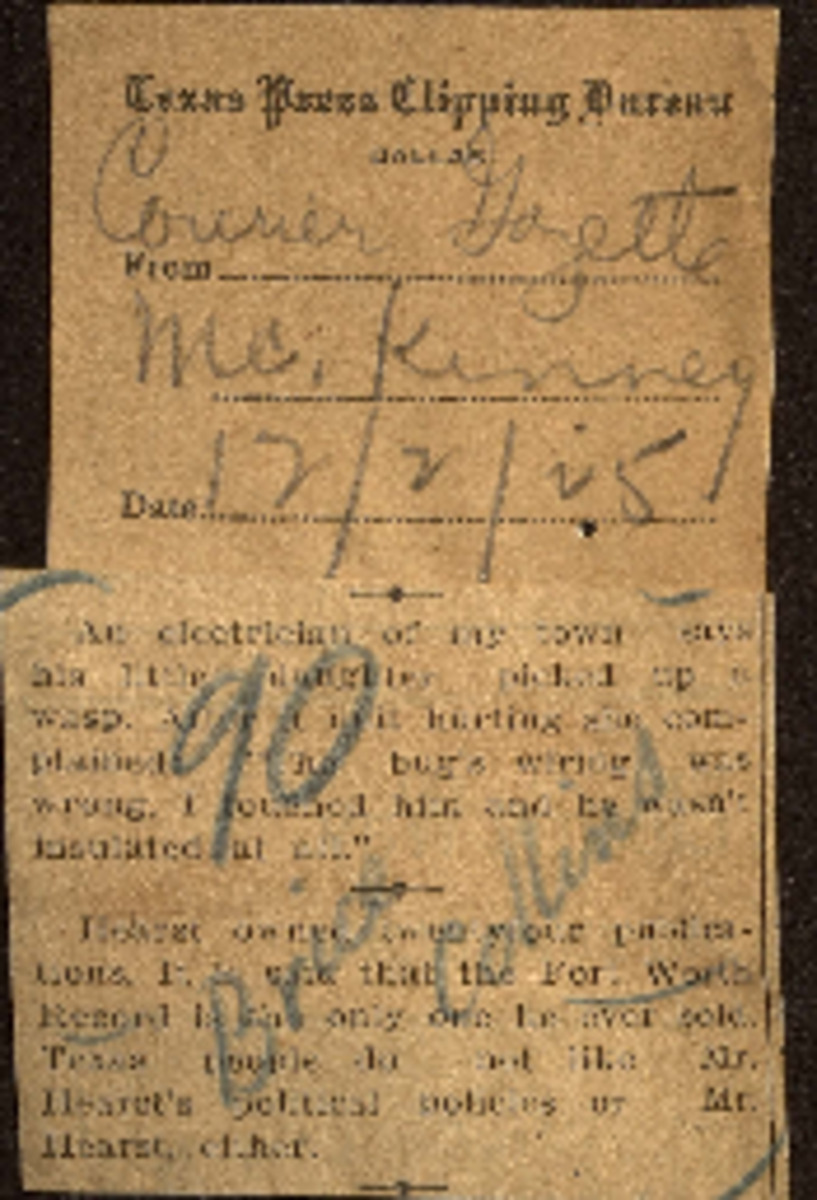 Texas Press Clipping Bureau
DALLAS
Courier Gazette
From
Mc. Kenney
Date 12/2/25
An electrician of my town says
his little daughter picked up a
wasp. After it quit hurting she com-
plained: bug's wiring was
wrong. I touched him and he wasn't
insulated at all."
90
Brice Collins
Hearst owned twenty-four publica-
tions. It is said that the Fort Worth
Record is the only one he ever sold.
Texas people do not like Mr.
Hearst's political policies or Mr.
Hearst, either.